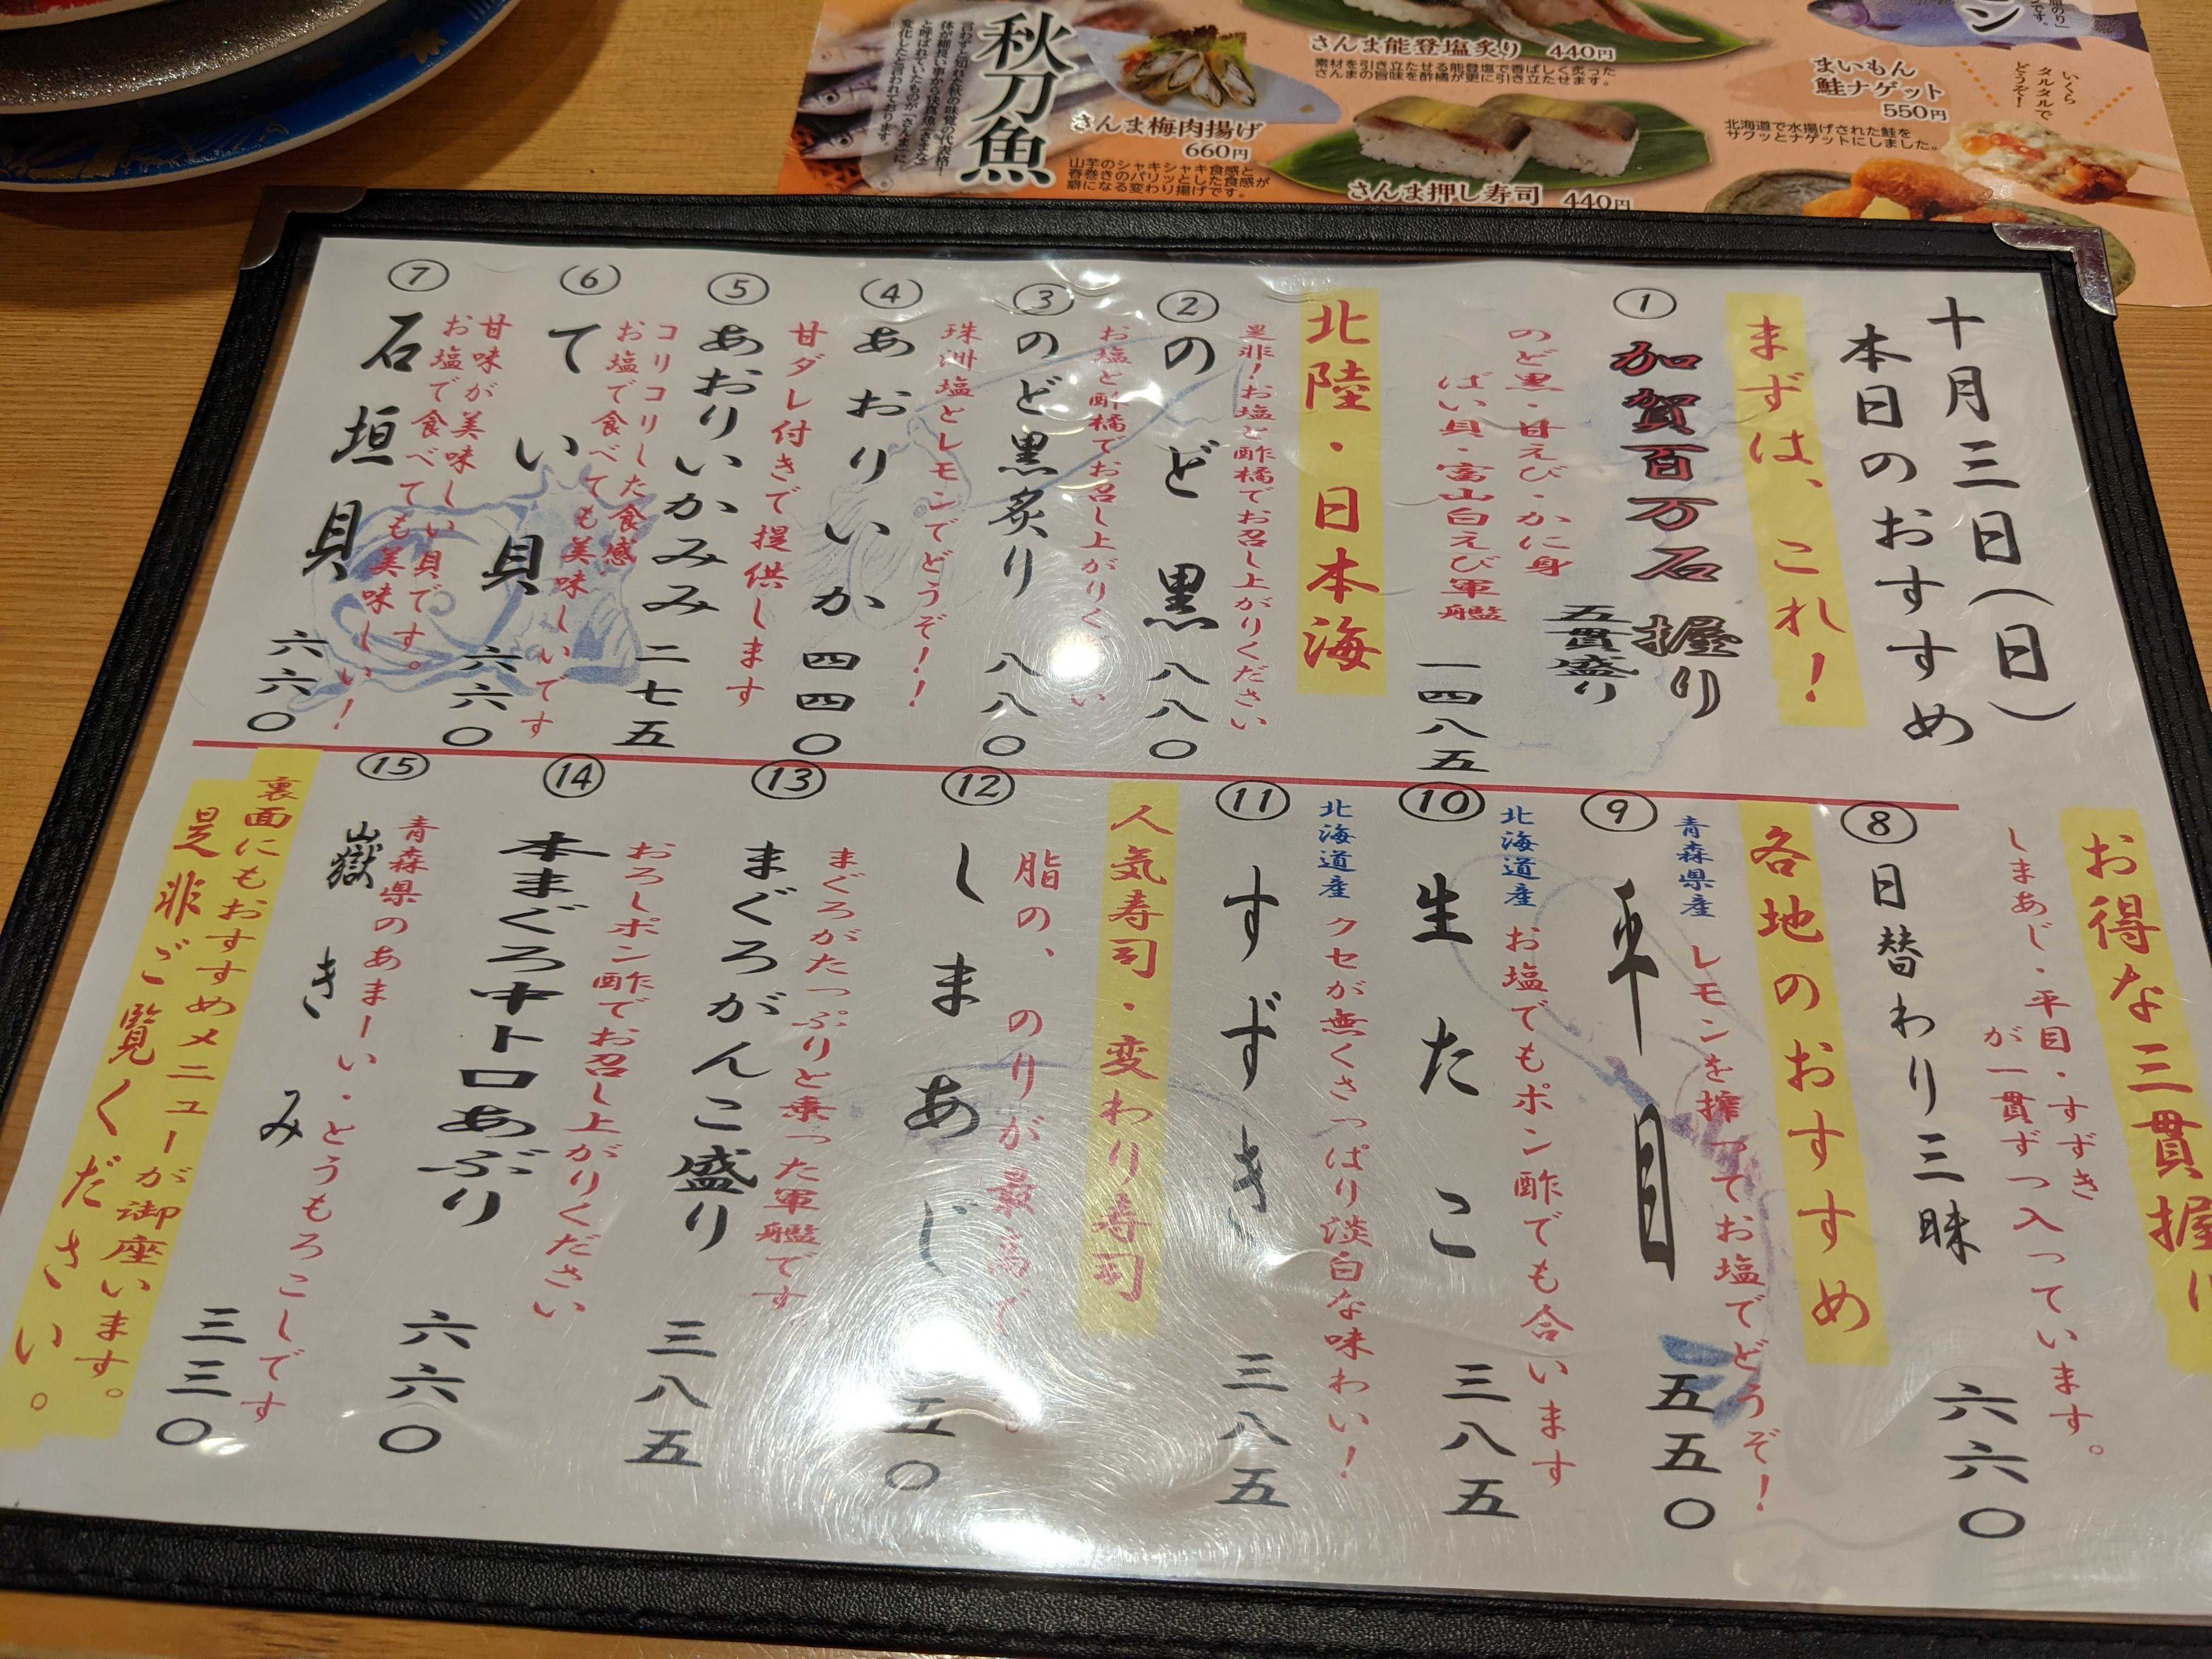 秋刀魚
言わずと知れた秋の味覚の代表格!
さんま梅肉揚げ
660円
山芋のシャキシャキ食感と
春巻きのパリッとした食感が
癖になる変わり揚げです。
さんま能登塩炙り 440円
素材を引き立たせる能登塩で香ばしく炙った
さんまの旨味を酢橘が更に引き立たせます。
さんま押し寿司 440円
まいもん
鮭ナゲット
550円
北海道で水揚げされた鮭を
サクッとナゲットにしました。
いくら
タルタルで
どうぞ!
十月三日(日)
本日のおすすめ
まずは、これ!
① 加賀百万石握り
五貫盛り
のど黒・甘えび・かに身
ばい貝・富山白えび軍艦
一四八五
北陸・日本海
是非!お塩と酢橘でお召し上がりください
② のど黒 八八〇
お塩と酢橘でお召し上がりください
③ のど黒炙り 八八〇
珠洲塩とレモンでどうぞ!!
④ あおりいか 四四〇
甘ダレ付きで提供します
⑤ あおりいかみみ 二七五
コリコリした食感
お塩で食べても美味しいです
⑥ てい貝 六六〇
甘味が美味しい貝です。
お塩で食べても美味しい!
⑦ 石垣貝 六六〇
お得な三貫握り
しまあじ・平目・すずき
が一貫ずつ入っています。
⑧ 日替わり三昧 六六〇
各地のおすすめ
青森県産 レモンを搾ってお塩でどうぞ!
⑨ 平目 五五〇
北海道産 お塩でもポン酢でも合います
⑩ 生たこ 三八五
北海道産 クセが無くさっぱり淡白な味わい!
⑪ すずき 三八五
人気寿司・変わり寿司
脂の、のりが最高で
⑫ しまあじ 五〇
まぐろがたっぷりと乗った軍艦です
⑬ まぐろがんこ盛り 三八五
おろしポン酢でお召し上がりください
⑭ 本まぐろ中トロあぶり 六六〇
青森県のあまーい・とうもろこしです
⑮ 嶽きみ 三三〇
裏面にもおすすめメニューが御座います。
是非ご覧ください。